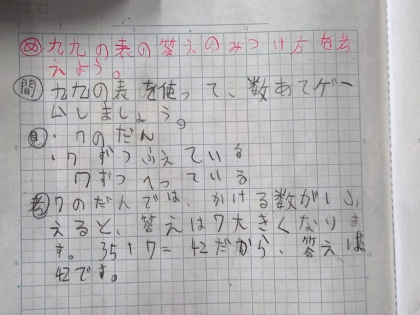 め 九九の表の答えのみつけ方を考
えよう。
問 九九の表を使って、数あてゲー
ムしましょう。
見 ・7のだん
・7ずつふえている
7ずつへっている
考 7のだんでは、かける数が1ふ
えると、答えは7大きくなりま
す。35+7=42だから、答えは
42です。